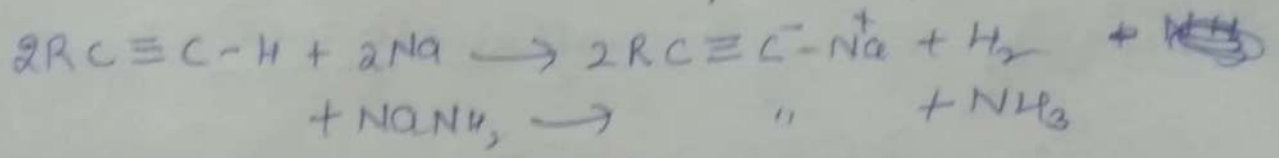 2RC≡C-H + 2Na → 2RC≡C⁻-Na⁺ + H₂ +
+ NaNH₂ → " + NH₃